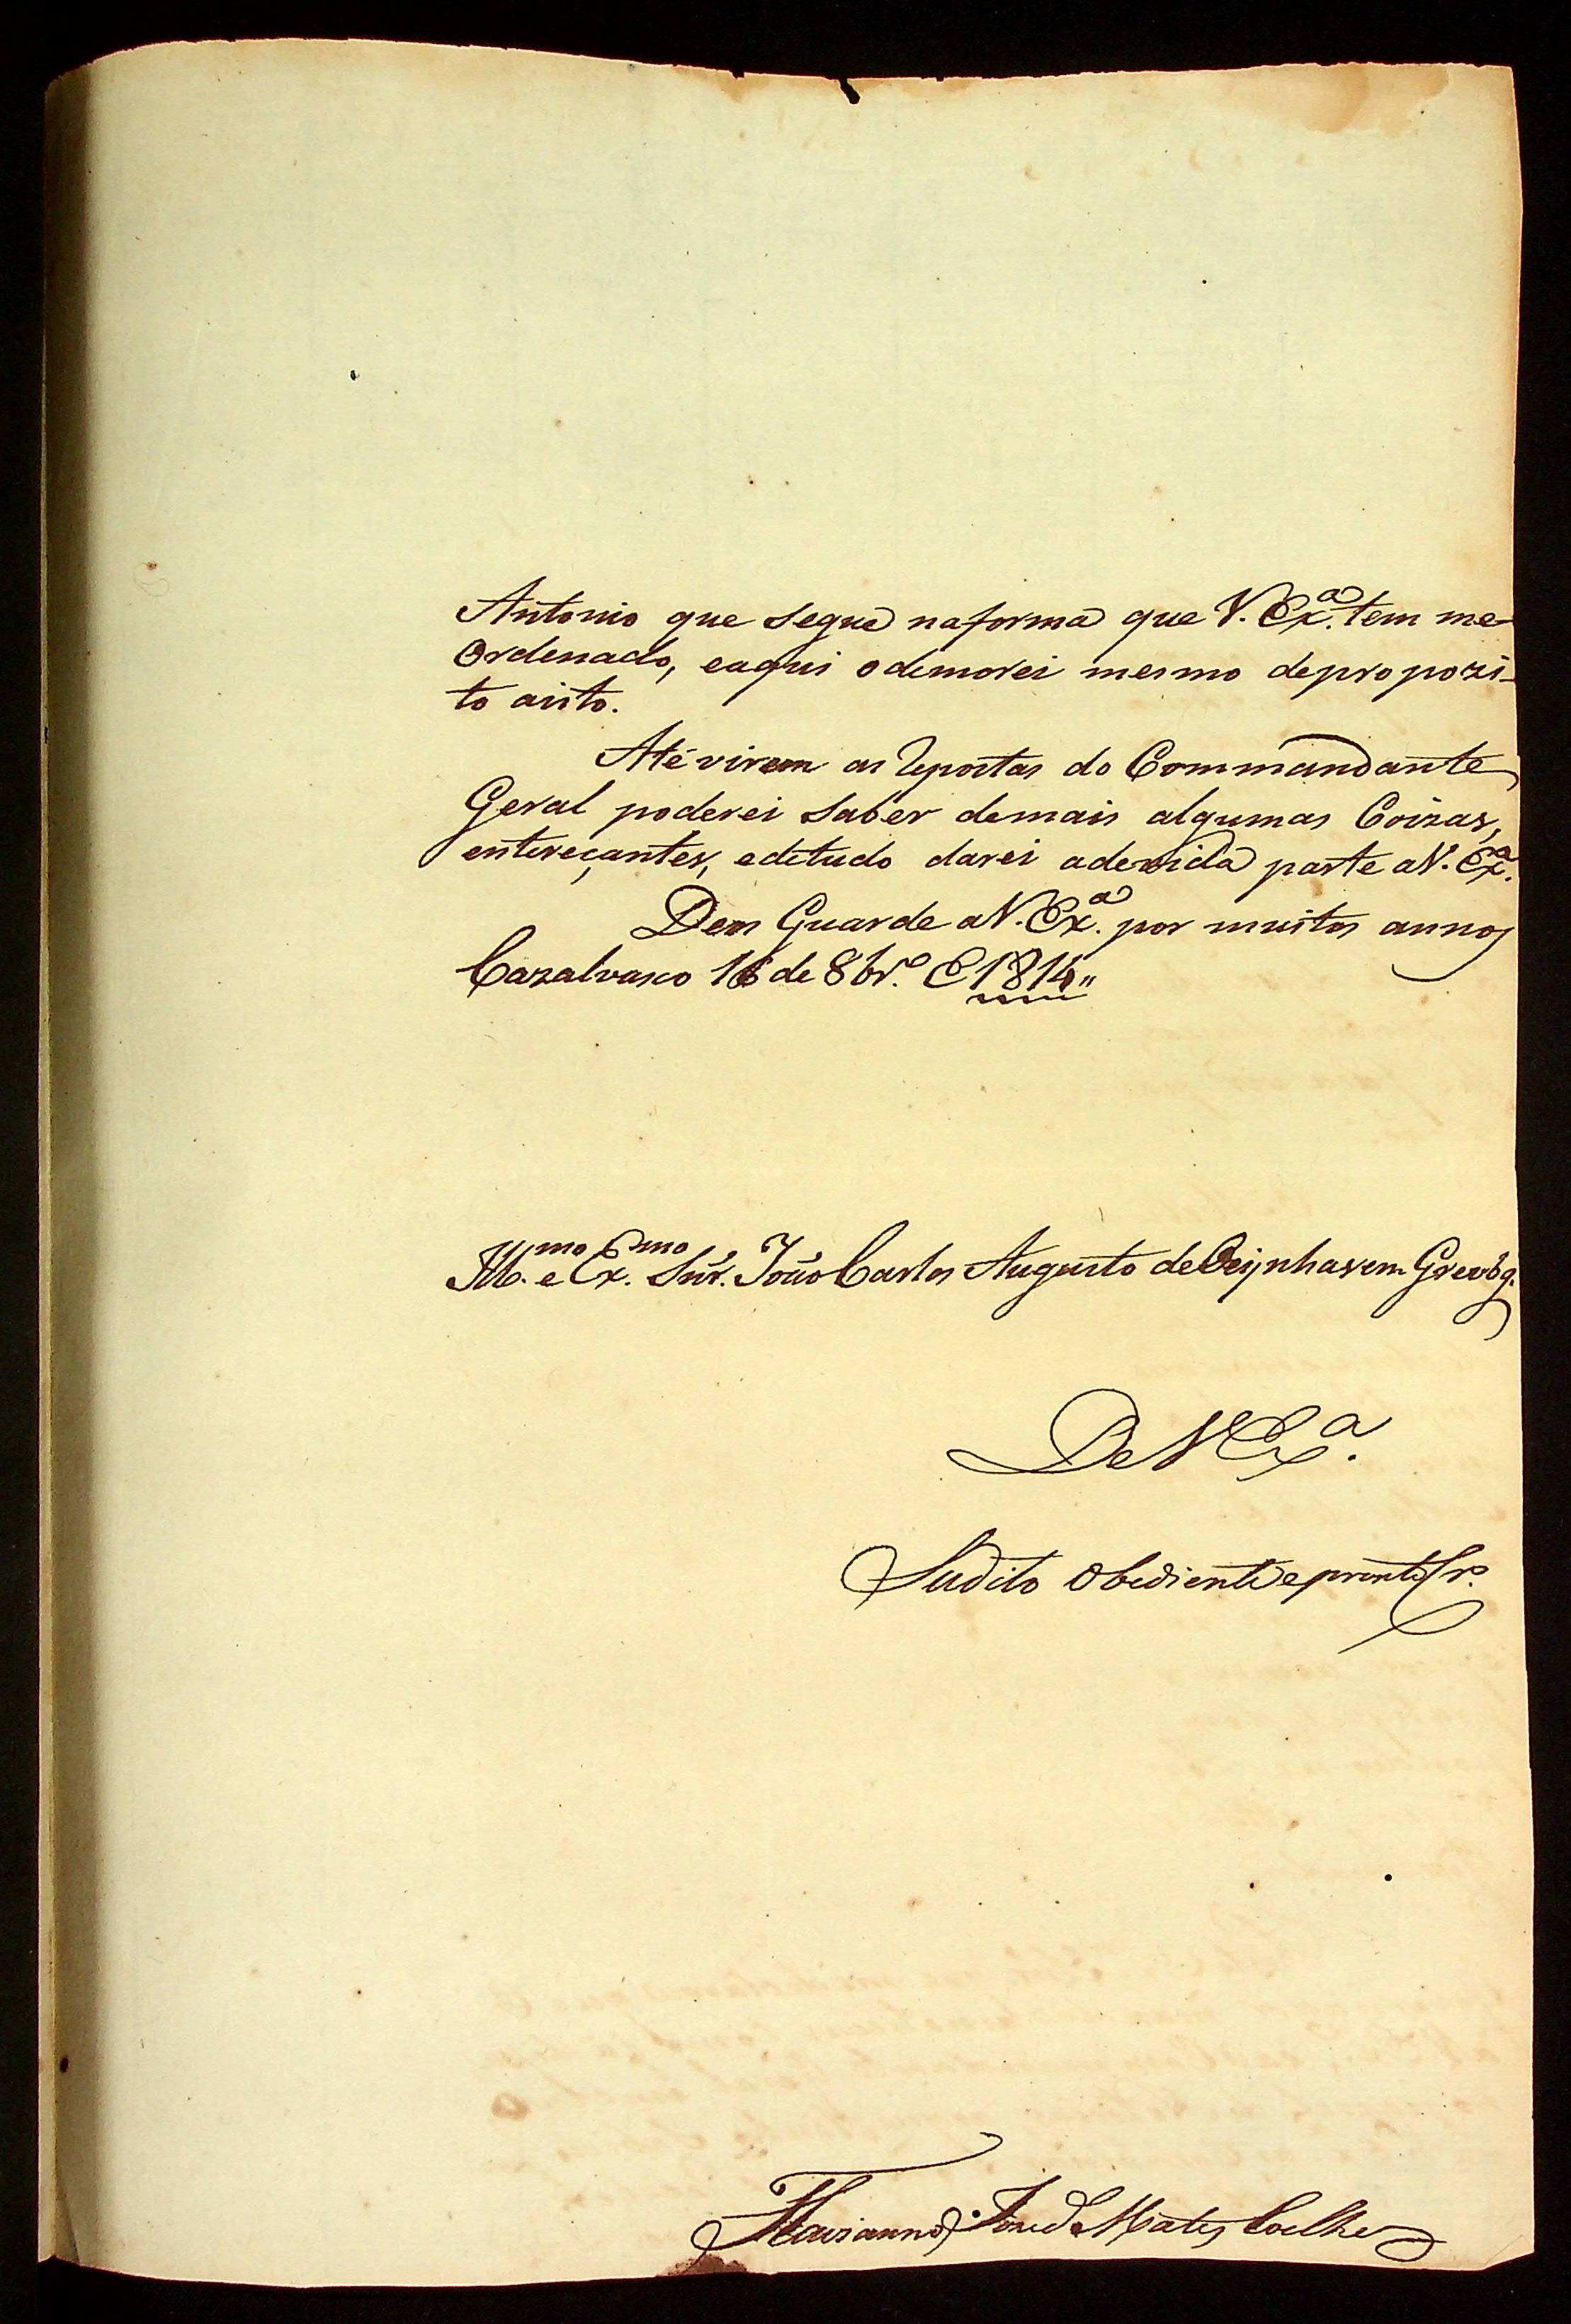 Antonio que segue naforma que V. Exa. tem me
Ordenado, eaqui odemorei mesmo depropozi-
to aisto.
Até virem as repostas do Commandante
Geral poderei saber demais algumas Coizas,
entereçantes, edetudo darei adevida parte aV. Exa.
Deos Guarde aV. Exa. por muitos annos
Cazalvasco 16 de 8bro. E 1814"
Illmo. e Exmo. Snr. João Carlos Augusto de Oeijnhasem Grevbg.
De V Exa.
Sudito Obediente e pronto Cro.
Marianno José de Matos Coelho